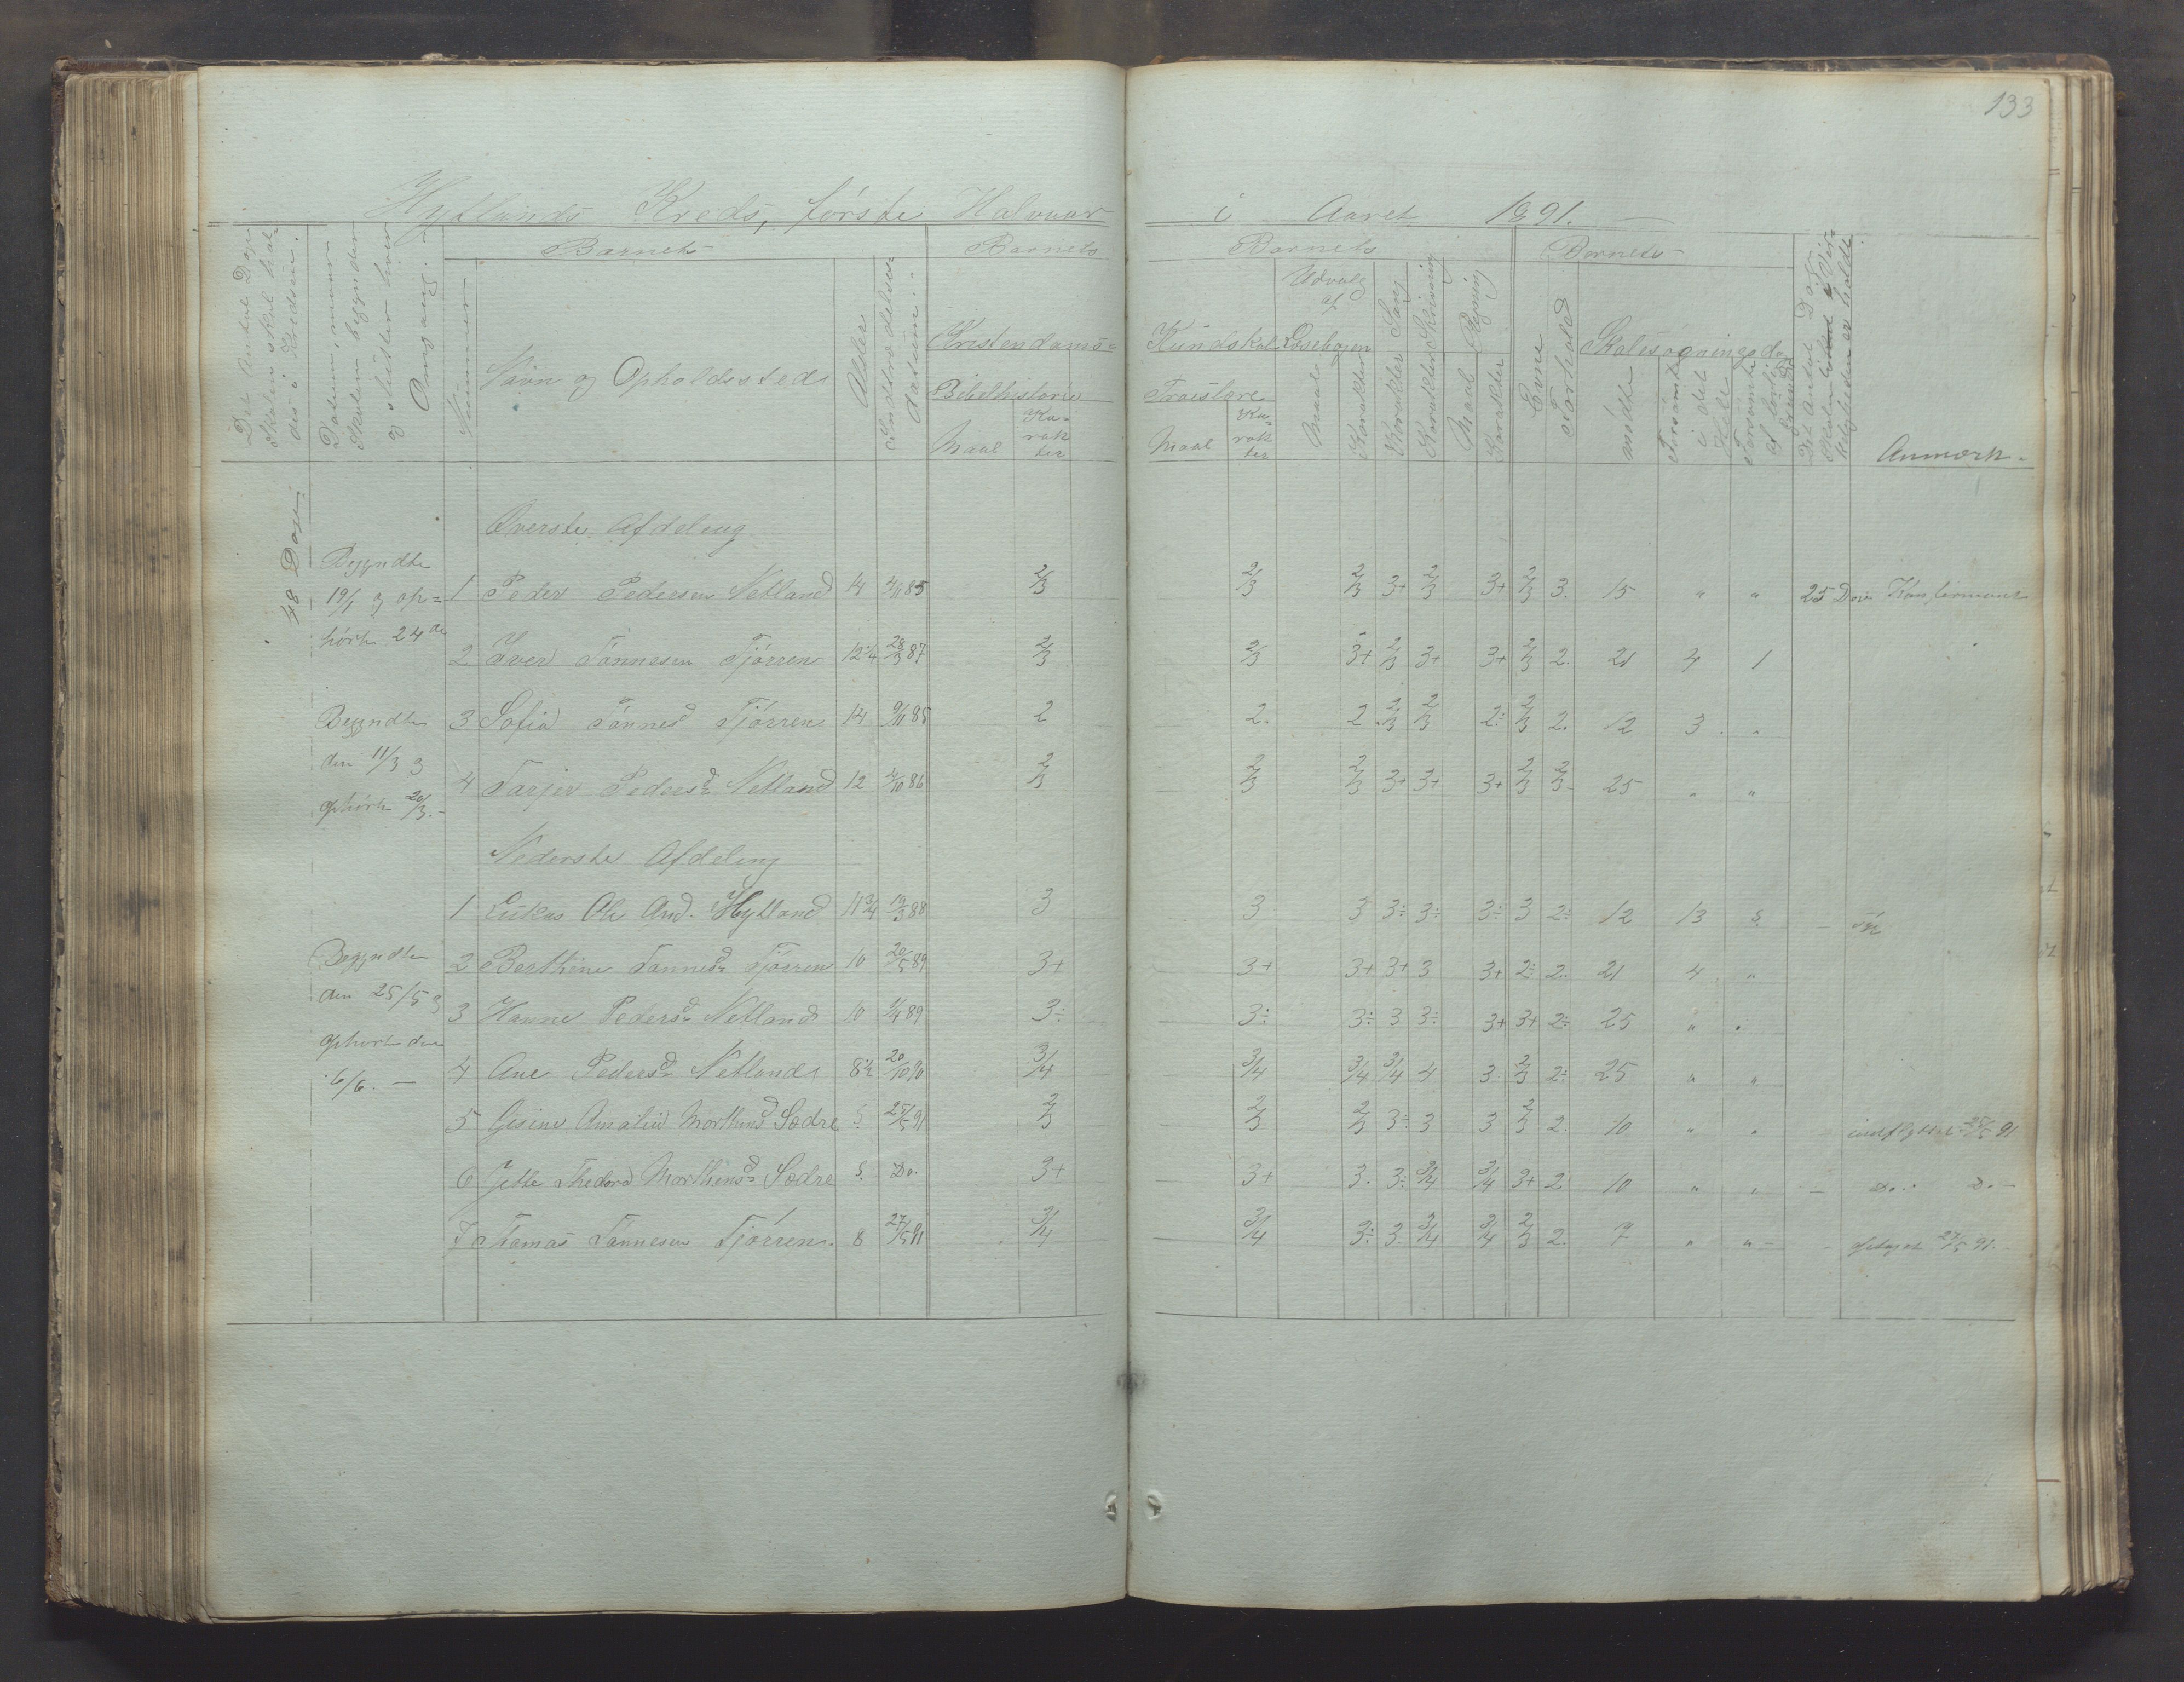 133
Hytlands Kreds, første Halvaar i Aaret 1891.
Det Antal Dage Skolen skal holdes i Kredsen.
Datum, naar Skolen begynder og slutter hver Omgang.
Nummer
Barnets
Navn og Opholdssted
Alder
Indtrædelsesdatum.
Barnets
Kristendoms-
Bibelhistorie
Maal
Karakter
Barnets
Kundskab
Troeslære
Maal
Karakter
Udvalg af Læsebogen
Maal
Karakter
Sang
Karakter
Skrivning
Karakter
Regning
Maal
Karakter
Barnets
Evne
Forhold
Skolesøgningsdage
mødte
Forsømte i det Hele
Forsømte af lovlig Grund
Det Antal Dage Skolen i Virkeligheden er holdt
Anmærk.
48 Dage
Øverste Afdeling
Begyndte
19/1 og op=
hørte 24de
1 Peder Pedersen Netland 14 4/11 85 2/3 2/3 2/3 3+ 2/3 3+ 2/3 3. 15 " " 25 Dage Konfirmant
2 Iver Tønnesen Tjørren 12 1/4 28/3 87 2/3 2/3 3+ 2/3 3+ 3+ 2/3 2. 21 4 1
Begyndte
den 11/3 og
ophørte 20/3.-
3 Sofia Tønnesd Tjørren 14 9/11 85 2 2. 2 2/3 2/3 2÷ 2/3 2. 12 3 "
4 Tarjer Pedersd Netland 12 4/10 86 2/3 2/3 2/3 3+ 3+ 3+ 2/3 2/3 25 " "
Nederste Afdeling
1 Lukas Ole And. Hytland 11 3/4 19/3 88 3 3 3 3÷ 3÷ 3÷ 3 2÷ 12 13 5
Begyndte
den 25/5 og
ophørte den
6/6. —
2 Berthine Tønnesd Tjørren 10 20/5 89 3+ 3+ 3+ 3+ 3 3+ 2÷ 2. 21 4 "
3 Hanne Pedersd Netland 10 1/4 89 3÷ 3÷ 3÷ 3 3÷ 3+ 3+ 2÷ 25 " "
4 Ane Pedersd Netland 8 1/2 20/10 90 3/4 3/4 3/4 3/4 4 3 2/3 2÷ 25 " "
5 Gesine Amalia Morthensd Sædre 25/5 91 2/3 2/3 2/3 3÷ 3 3 2/3 2. 10 " " indflyttet 25/5 91
6 Jette Thedora Morthensd Sædre Do. 3+ 3+ 3. 3÷ 3/4 3/4 3+ 2 10 " " Do. Do. -
7 Thomas Tønnesen Tjørren. 8 27/5 91 3/4 3/4 3÷ 3 3/4 3/4 2/3 2. 7 " " - optaget 27/5 91.